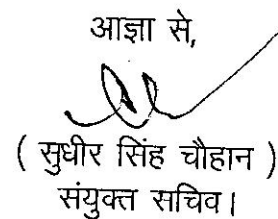 आज्ञा से,
( सुधीर सिंह चौहान )
संयुक्त सचिव।